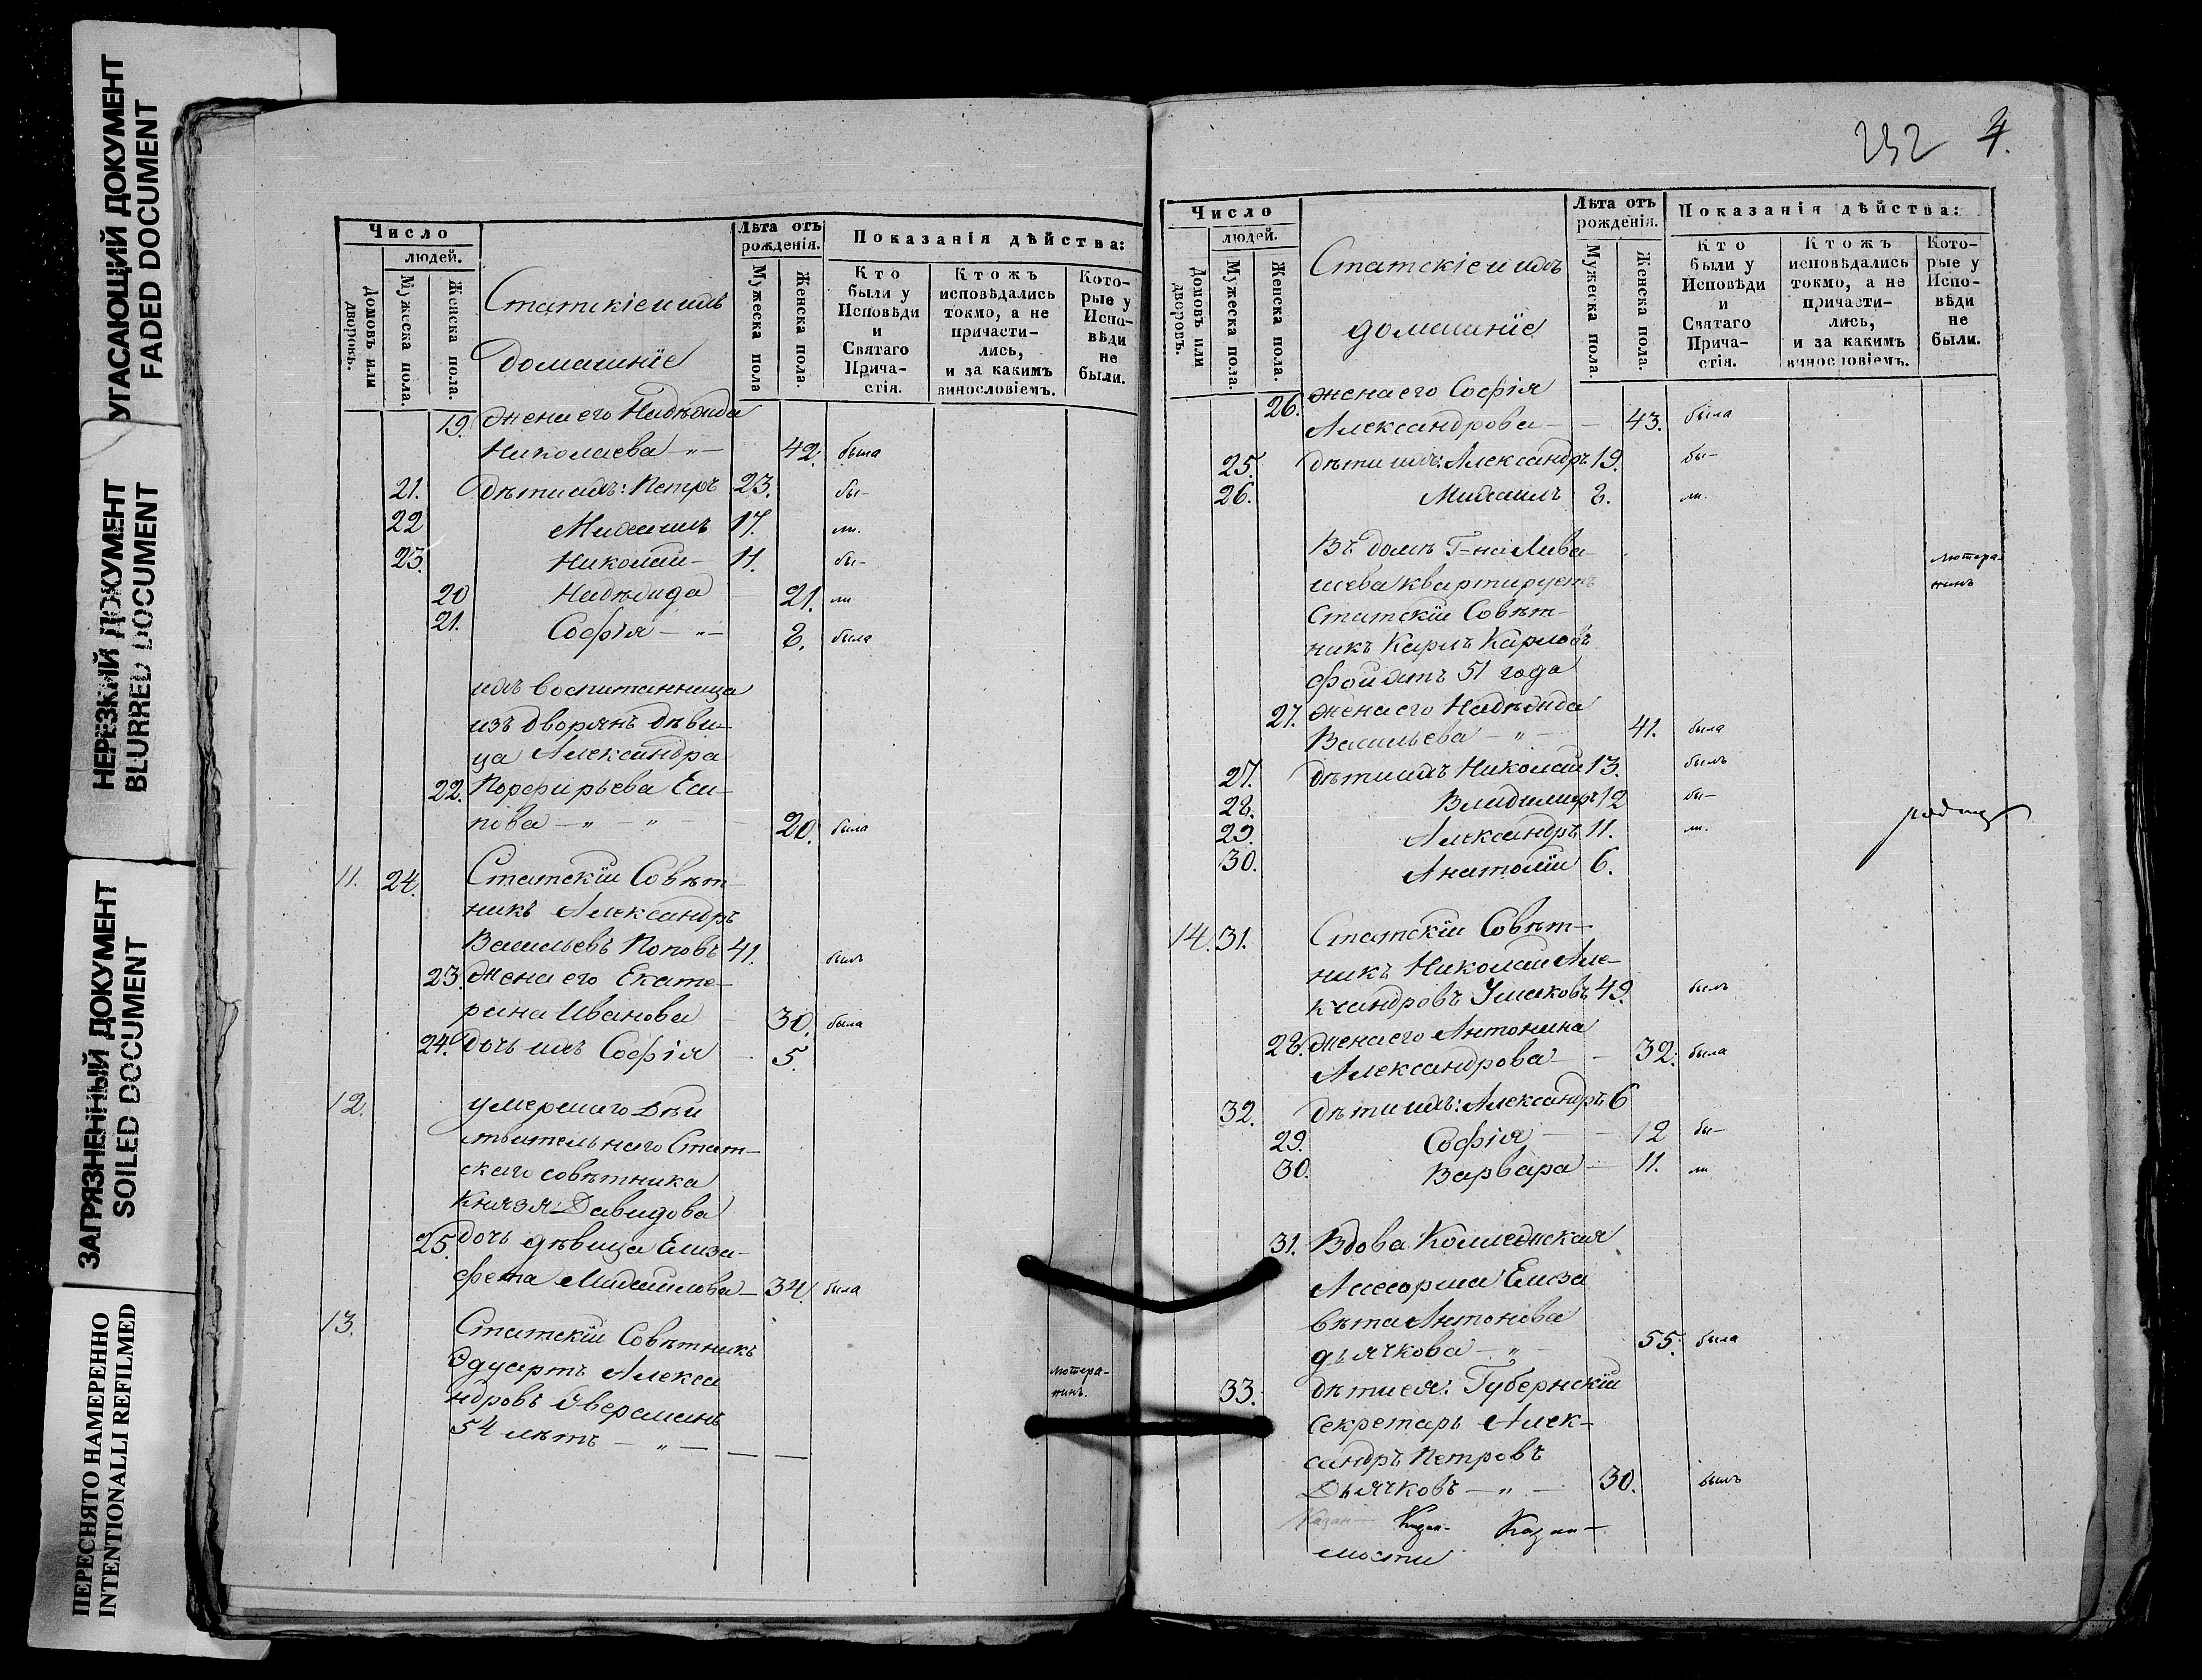 УГАСАЮЩИЙ ДОКУМЕНТ
FADED DOCUMENT
НЕРЕЗКИЙ ДОКУМЕНТ
BLURRED DOCUMENT
ЗАГРЯЗНЕННЫЙ ДОКУМЕНТ
SOILED DOCUMENT
ПЕРЕСНЯТО НАМЕРЕННО
INTENTIONALLI REFILMED
Число
людей.
Домовъ или дворовъ.
Мужеска пола.
Женска пола.
Статскіе и ихъ
домашніе
Лѣта отъ
рожденія.
Мужеска пола
Женска пола.
Показанія дѣйства:
Кто
были у
Исповѣди
и
Святаго
Прича-
стія.
Ктожъ
исповѣдались
токмо, а не
причасти-
лись,
и за какимъ
винословіемъ.
Кото-
рые у
Испо-
вѣди
не
были.
19. жена его Надежда
Николаева — „ — 42. была
21. дѣти ихъ: Петръ 23. бы-
22 Михаилъ 17. ли.
23. Николай — 11. бы-
20 Надежда 21. ли
21. Софія — „ — 8. была
ихъ воспитанница
изъ дворянъ дѣви-
ца Александра
22. Порфирьева Еси-
пова — „ — „ — 20. была
11. 24. Статскій Совѣт-
никъ Александръ
Васильевъ Поповъ 41. былъ
23. жена его Екате-
рина Иванова — 30. была
24. дочь ихъ Софія — 5.
12. умершаго Дѣй
ствительнаго Стат-
скаго совѣтника
Князя Давидова
25. дочь дѣвица Елиза-
фета Михайлова — 34. была
13. Статскій Совѣтникъ
Эдуартъ Алекса
ндровъ Эверсманъ лютера-
54 лѣтъ — „ — — — нинъ.
232 4.
Число
людей.
Домовъ или дворовъ.
Мужеска пола.
Женска пола.
Статскіе и ихъ
домашніе
Лѣта отъ
рожденія.
Мужеска пола.
Женска пола.
Показанія дѣйства:
Кто
были у
Исповѣди
и
Святаго
Прича-
стія.
Ктожъ
исповѣдались
токмо, а не
причасти-
лись,
и за какимъ
винословіемъ.
Кото-
рые у
Испо-
вѣди
не
были.
26. жена его Софія
Александрова — — 43. была
25. дѣти ихъ: Александръ 19. бы-
26. Михаилъ 8. ли.
Въ домѣ Г-на Лива-
шева квартируетъ лютера-
Статскій Совѣт- нинъ
никъ Карлъ Карловъ
Фойхтъ 51 года
27. жена его Надежда
Васильева — „ — 41. была
27. дѣти ихъ Николай 13. былъ
28. Владимиръ 12 бы-
29. Александръ 11. ли.
30. Анатолій 6.
14. 31. Статскій Совѣт-
никъ Николай Але-
ксандровъ Ушаковъ 49. былъ
28. жена его Антонина
Александрова — — 32. была
32. дѣти ихъ: Александръ 6
29. Софія — — 12 бы-
30. Варвара — 11. ли
31. Вдова Коллежская
Ассесорша Елиза
бѣта Антонова
дьячкова — „ — 55. была
33. дѣти ея: Губернскій
секретарь Алек-
сандръ Петровъ
Дьячковъ — „ — 30. былъ
Казан- Казан- Казан-
мости